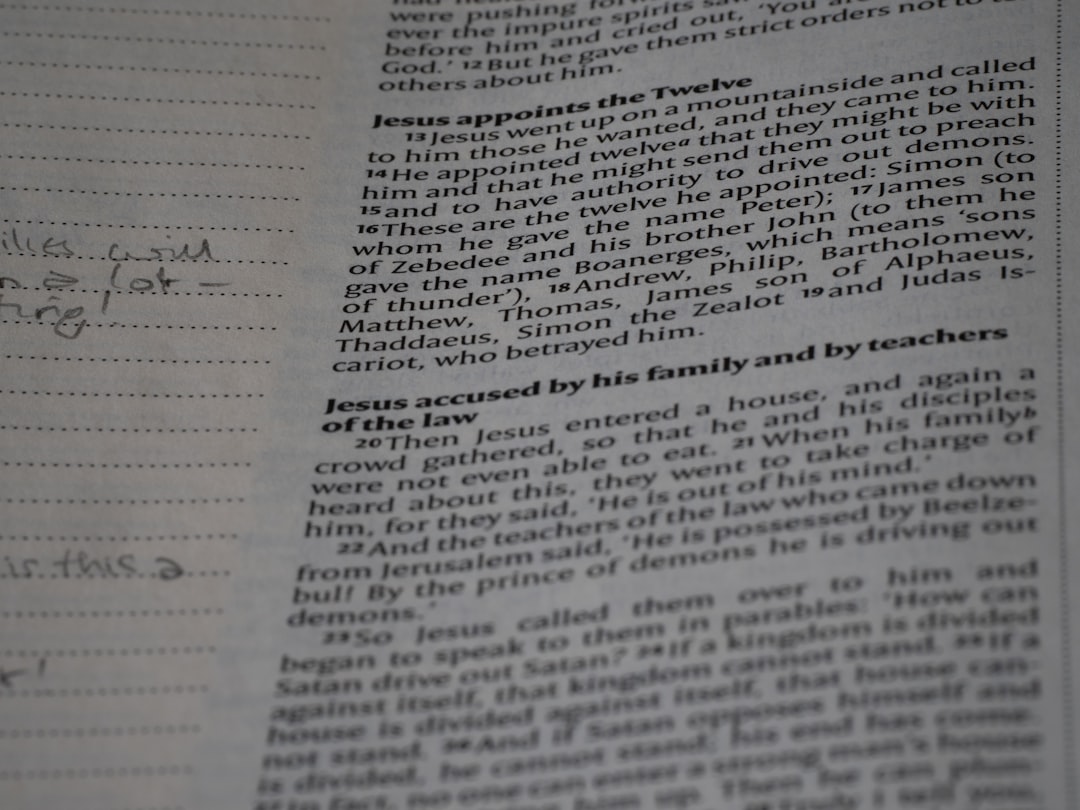 were pushing
ever the impure spirits
before him and cried out, 'You
God.' 12 But he gave them strict orders not to
others about him.
Jesus appoints the Twelve
13 Jesus went up on a mountainside and called
to him those he wanted, and they came to him.
14 He appointed twelveᵃ that they might be with
him and that he might send them out to preach
15 and to have authority to drive out demons.
16 These are the twelve he appointed: Simon (to
whom he gave the name Peter); 17 James son
of Zebedee and his brother John (to them he
gave the name Boanerges, which means 'sons
of thunder'), 18 Andrew, Philip, Bartholomew,
Matthew, Thomas, James son of Alphaeus,
Thaddaeus, Simon the Zealot 19 and Judas Is-
cariot, who betrayed him.
Jesus accused by his family and by teachers
of the law
20 Then Jesus entered a house, and again a
crowd gathered, so that he and his disciples
were not even able to eat. 21 When his familyᵇ
heard about this, they went to take charge of
him, for they said, 'He is out of his mind.'
22 And the teachers of the law who came down
from Jerusalem said, 'He is possessed by Beelze-
bul! By the prince of demons he is driving out
demons.'
23 So Jesus called them over to him and
began to speak to them in parables: 'How can
Satan drive out Satan? 24 If a kingdom is divided
against itself, that kingdom cannot stand. 25 If a
house is divided against itself, that house can-
not stand. 26 And if Satan opposes himself and
is divided, he cannot stand; his end has come.
27 In fact, no one can enter a strong man's house
him up. Then he can plun-
I tell you,
will
a lot –
is this a